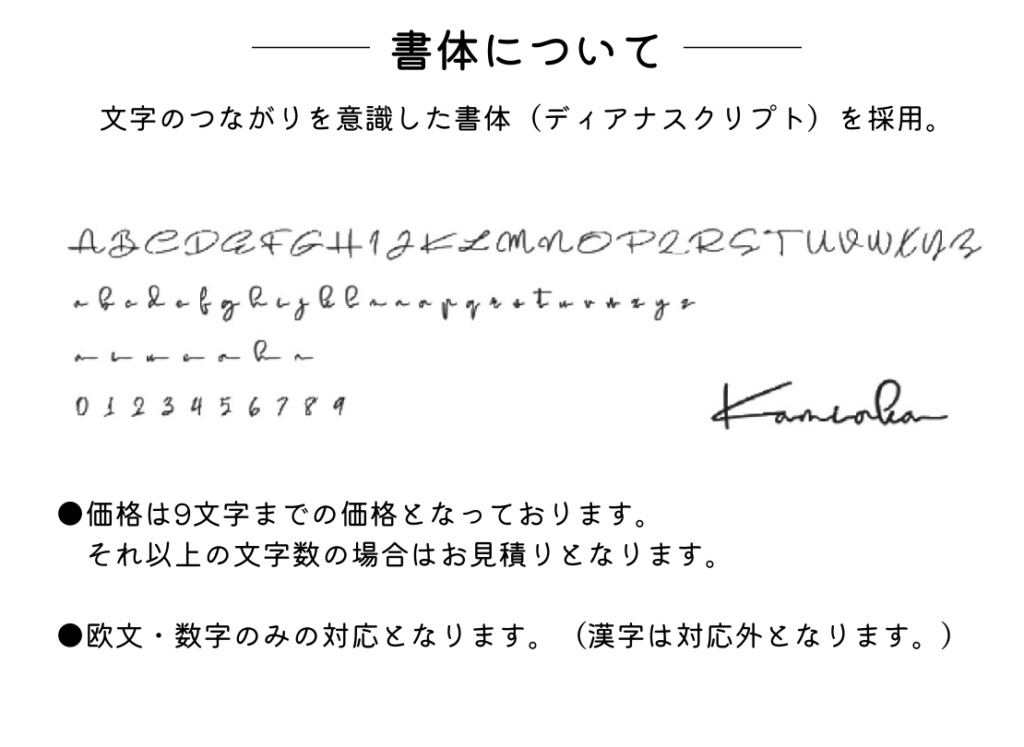 書体について
文字のつながりを意識した書体（ディアナスクリプト）を採用。
ABCDEFGHIJKLMNOPQRSTUVWXYZ
a b c d e f g h i j k l m n o p q r s t u v w x y z
0 1 2 3 4 5 6 7 8 9
Kamioka
●価格は9文字までの価格となっております。
それ以上の文字数の場合はお見積りとなります。
●欧文・数字のみの対応となります。（漢字は対応外となります。）